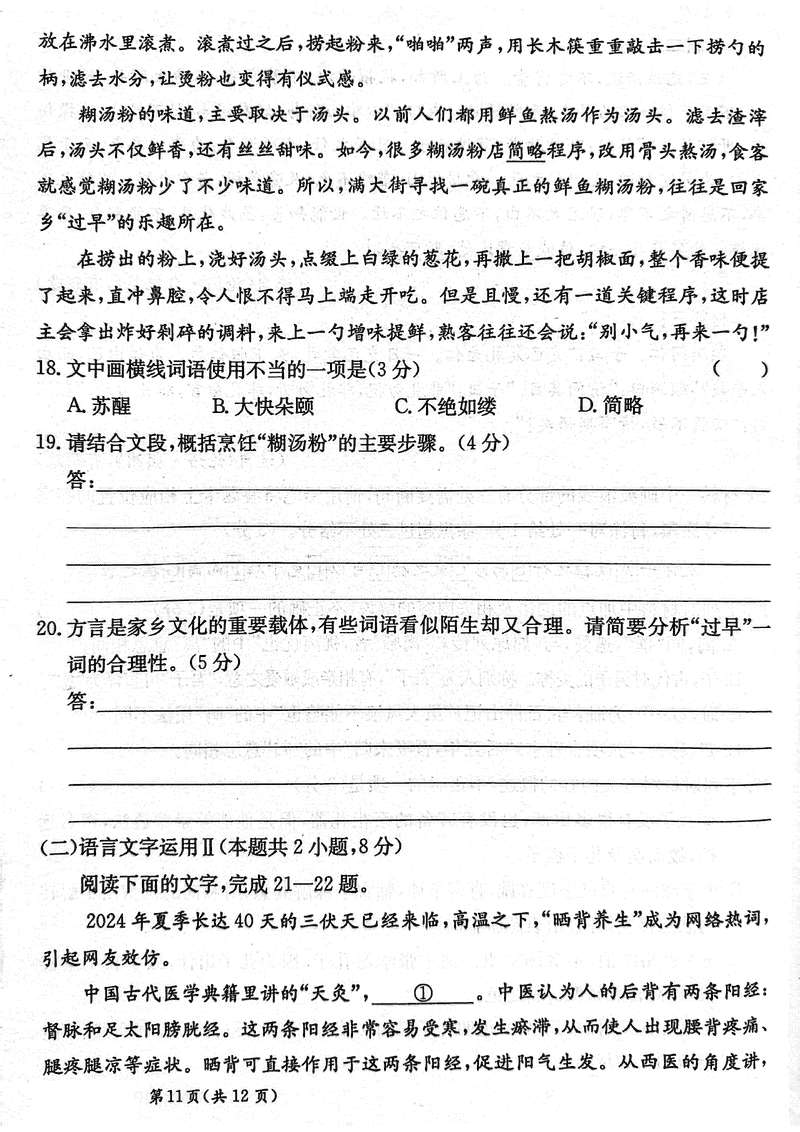 放在沸水里滚煮。滚煮过之后,捞起粉来,“啪啪”两声,用长木筷重重敲击一下捞勺的
柄,滤去水分,让烫粉也变得有仪式感。
糊汤粉的味道,主要取决于汤头。以前人们都用鲜鱼熬汤作为汤头。滤去渣滓
后,汤头不仅鲜香,还有丝丝甜味。如今,很多糊汤粉店简略程序,改用骨头熬汤,食客
就感觉糊汤粉少了不少味道。所以,满大街寻找一碗真正的鲜鱼糊汤粉,往往是回家
乡“过早”的乐趣所在。
在捞出的粉上,浇好汤头,点缀上白绿的葱花,再撒上一把胡椒面,整个香味便提
了起来,直冲鼻腔,令人恨不得马上端走开吃。但是且慢,还有一道关键程序,这时店
主会拿出炸好剁碎的调料,来上一勺增味提鲜,熟客往往还会说:“别小气,再来一勺!”
18.文中画横线词语使用不当的一项是(3分) ( )
A.苏醒 B.大快朵颐 C.不绝如缕 D.简略
19.请结合文段,概括烹饪“糊汤粉”的主要步骤。(4分)
答:
20.方言是家乡文化的重要载体,有些词语看似陌生却又合理。请简要分析“过早”一
词的合理性。(5分)
答:
(二)语言文字运用Ⅱ(本题共2小题,8分)
阅读下面的文字,完成21—22题。
2024年夏季长达40天的三伏天已经来临,高温之下,“晒背养生”成为网络热词,
引起网友效仿。
中国古代医学典籍里讲的“天灸”,①。中医认为人的后背有两条阳经:
督脉和足太阳膀胱经。这两条阳经非常容易受寒,发生瘀滞,从而使人出现腰背疼痛、
腿疼腿凉等症状。晒背可直接作用于这两条阳经,促进阳气生发。从西医的角度讲,
第11页(共12页)